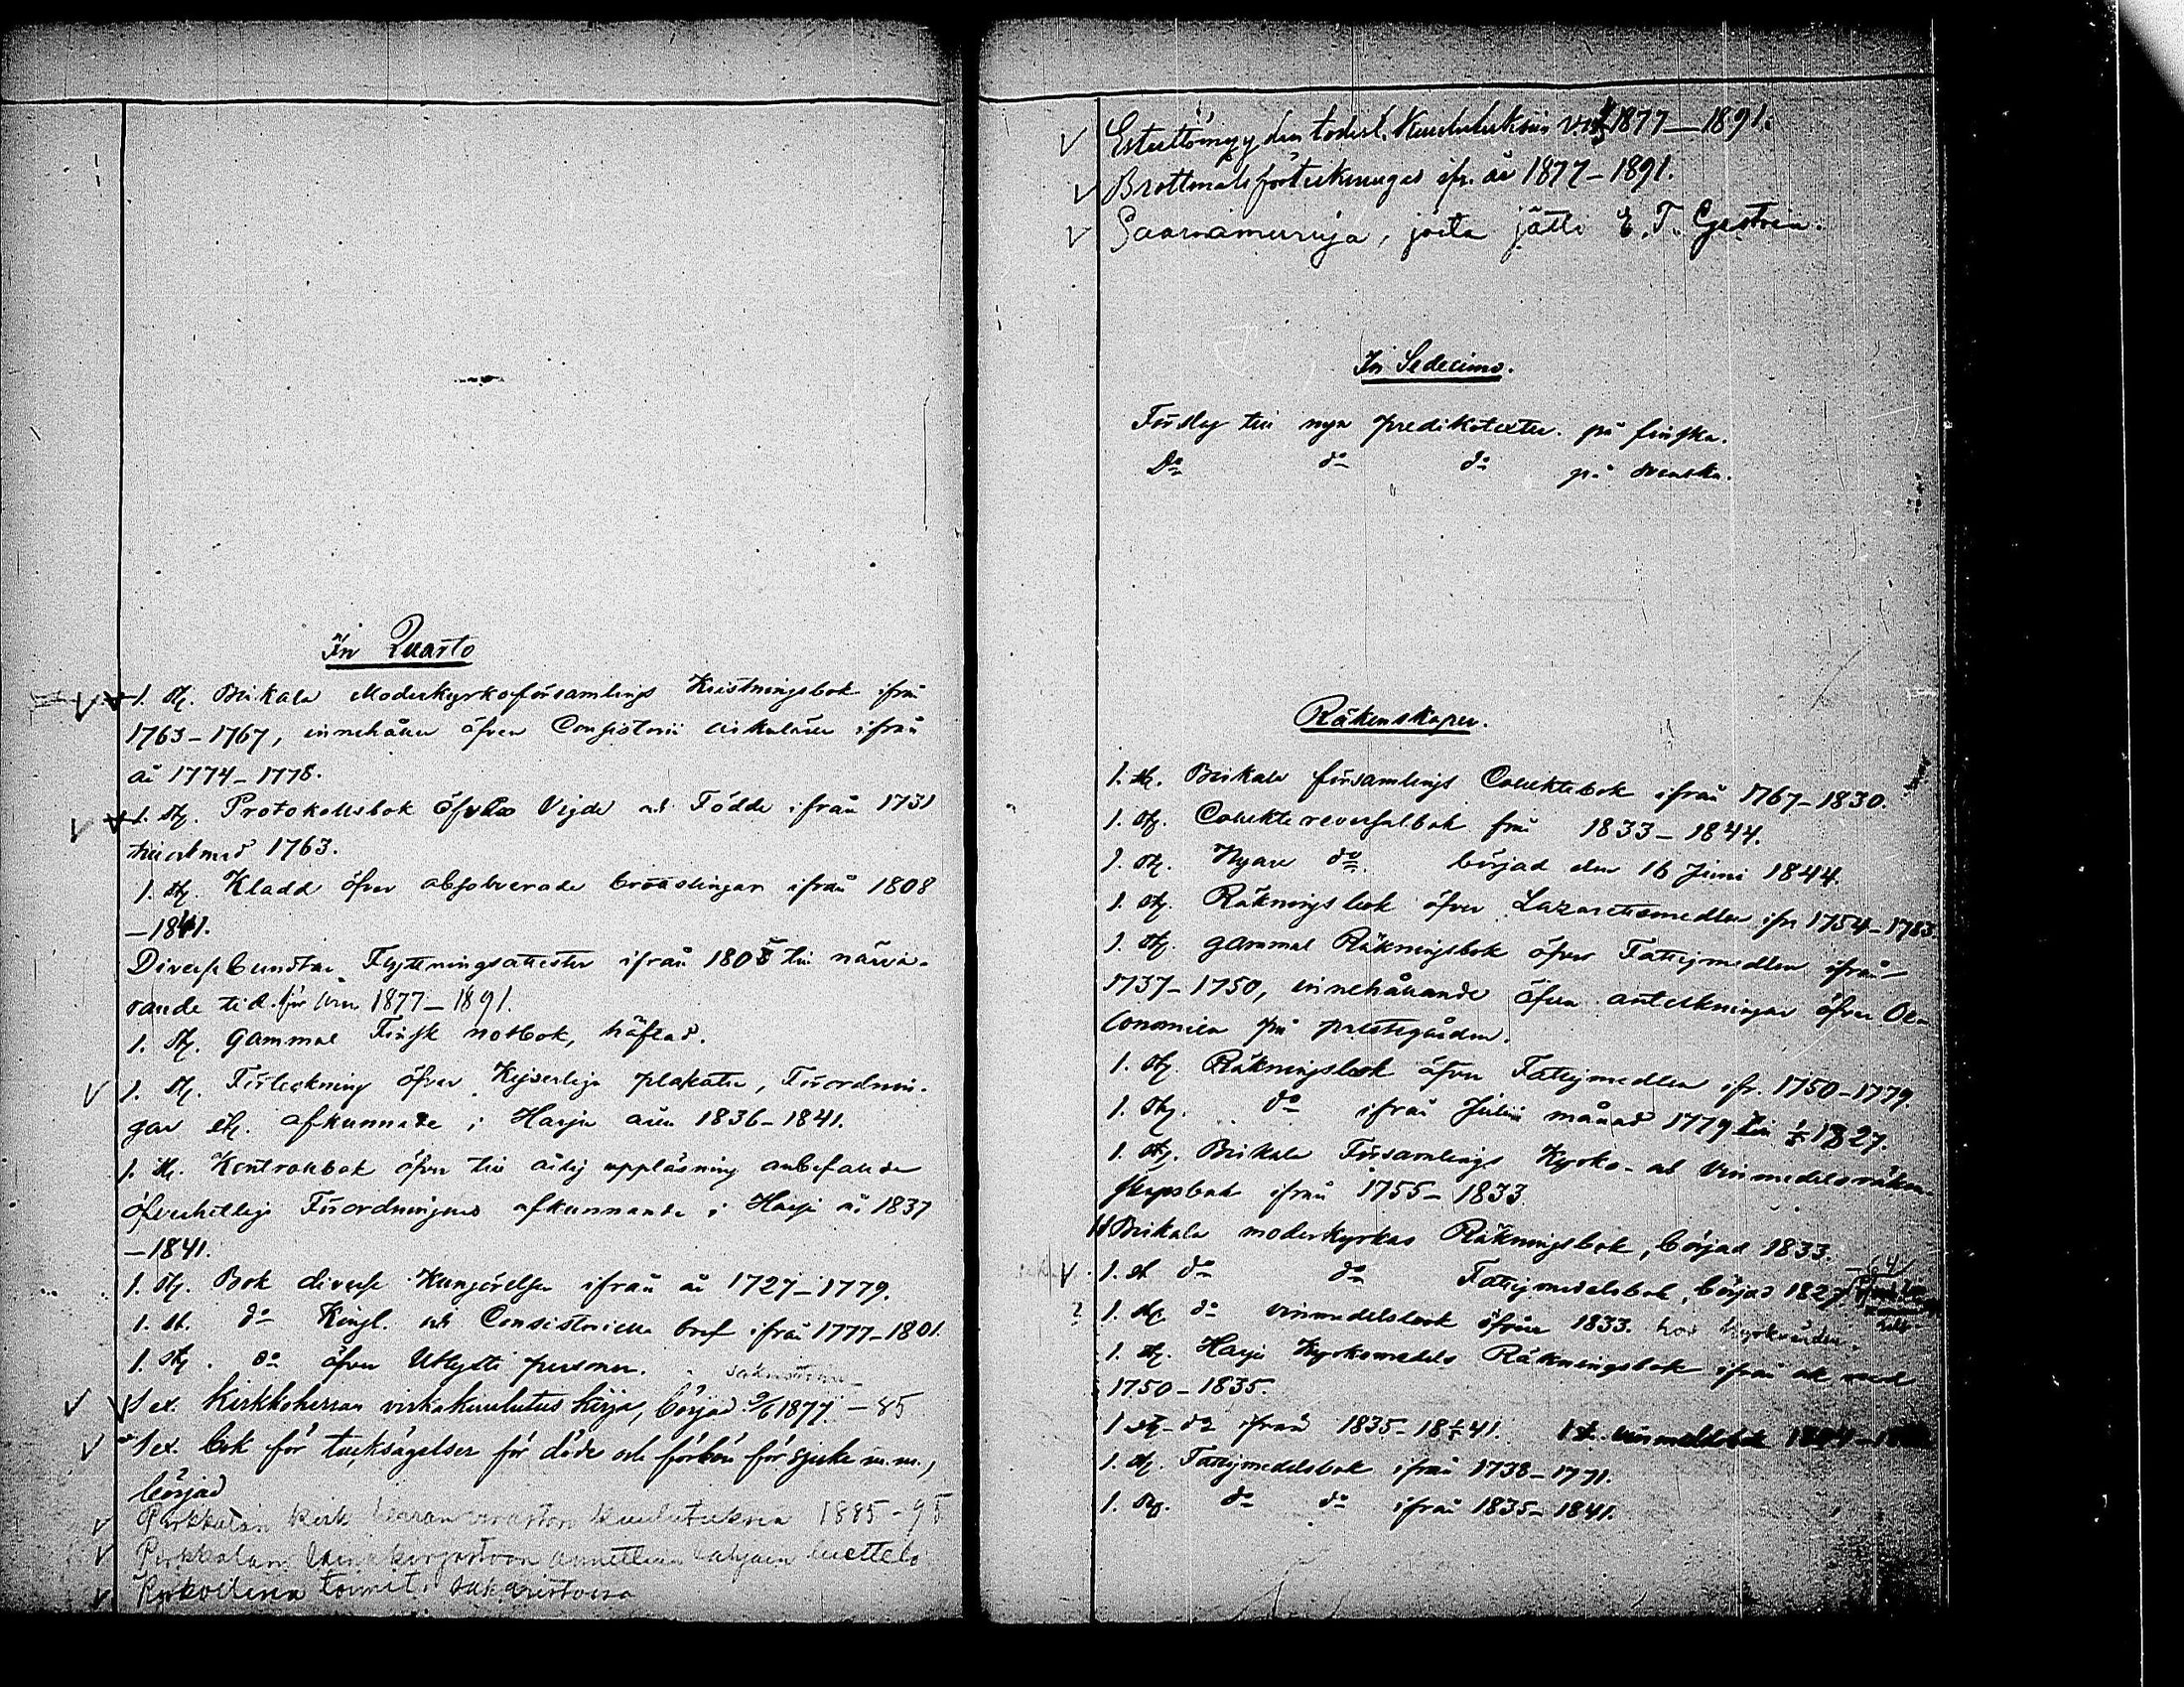 In Quarto
1. st. Birkala Moderkyrkoförsamlings Kristningsbok ifrån
1763-1767, innehåller öfven Consistorii cirkulärer ifrån
år 1774-1778.
1. st. Protokollsbok öfver Vigde och Födde ifrån 1731
till och med 1763.
1. st. Kladd öfver absolverade ifrån 1808
-1841.
Diverse bundtar Flyttningsattester ifrån 1808 till närva-
rande tid. för åren 1877-1891.
1. st. gammal Finsk notbok, häftad.
1. st. Förteckning öfver Kejserliga plakater, Förordnin-
gar etc. afkunnade i Harju åren 1836-1841.
1. st. Kontrollbok öfver till årlig uppläsning anbefallde
öfverhetliga Förordningars afkunnande i Harju år 1837
-1841.
1. st. Bok diverse Kungörelser ifrån år 1727-1779.
1. st. do Kongl. och Consistoriella bref ifrån 1777-1801.
1. st. do öfver Utlysta personer.
1 ex. Kirkkoherran virkakuulutus kirja, börjad 1877 - 85
1 ex. bok för tacksägelser för döde och förbön för sjuke m.m.,
börjad
Pirkkalan kirk. viraston kuulutuksia 1885-95
Pirkkalan lainakirjastoon annettuin lahjain luettelo
toimit. sakaristossa
Esteettömyyden todist. Kuulutuksiin 1877-1891.
Brottmåls förteckningar ifr. år 1877-1891.
Saarnamuruja, joita jätti E. T.
In Sedecimo.
Förslag till nya predikotexter. på finska.
Do do do på svenska.
Räkenskaper.
1. st. Birkala församlings Collektebok ifrån 1767-1830.
1. st. Collekte reversalbok från 1833-1844.
1. st. Nyare do. börjad den 16 Juni 1844.
1. st. Räkningsbok öfver Lazarettsmedlen ifr 1754-1783
1. st. gammal Räkningsbok öfver Fattigmedlen ifrån
1737-1750, innehållande öfven anteckningar öfver Oe-
conomien på prestegården.
1. st. Räkningsbok öfver Fattigmedlen ifr. 1750-1779.
1. st. do ifrån Julii månad 1779 till 1827.
1. st. Birkala Församlings Kyrko- och Vinmedelsräken-
skapsbok ifrån 1755-1833.
Birkala moderkyrkas Räkningsbok, börjad 1833.
1. st do do Fattigmedelsbok, börjad 1827 -64
1. st. do vinmedelsbok ifrån 1833. hos kyrkvärden.
1. st. Harju Kyrkomedels Räkningsbok ifrån och med
1750-1835.
1 st. do ifrån 1835-1841.
1. st. Fattigmedelsbok ifrån 1738-1771.
1. st. do do ifrån 1835-1841.